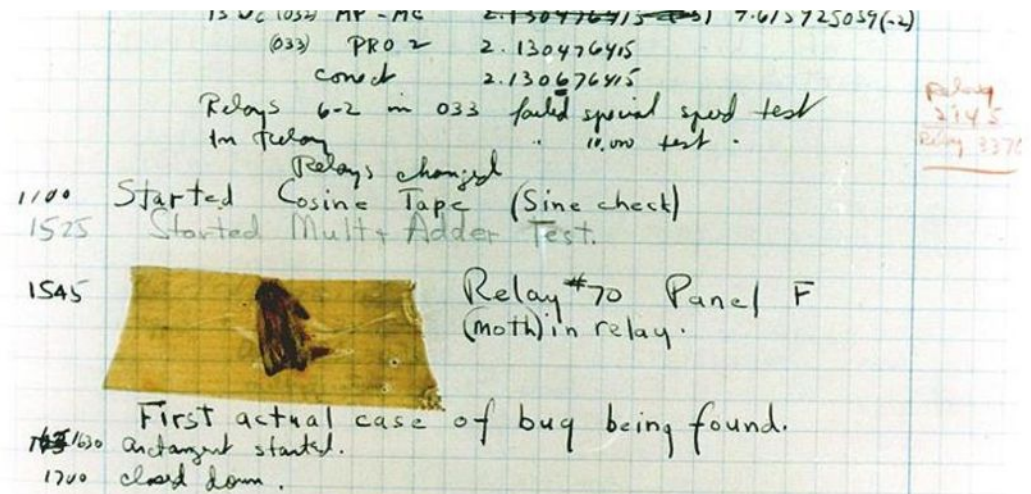 13 UC (032) MP - MC 2.130476415 (-3) 4.615925059(-2)
(033) PRO 2 2.130476415
conect 2.130676415
Relays 6-2 in 033 failed special speed test
In Relay " 10,000 test .
Relays changed
Relay
2145
Relay 3370
1100 Started Cosine Tape (Sine check)
1525 Started Mult + Adder Test.
1545 Relay #70 Panel F
(moth) in relay.
First actual case of bug being found.
1630 arctangent started.
1700 closed down .